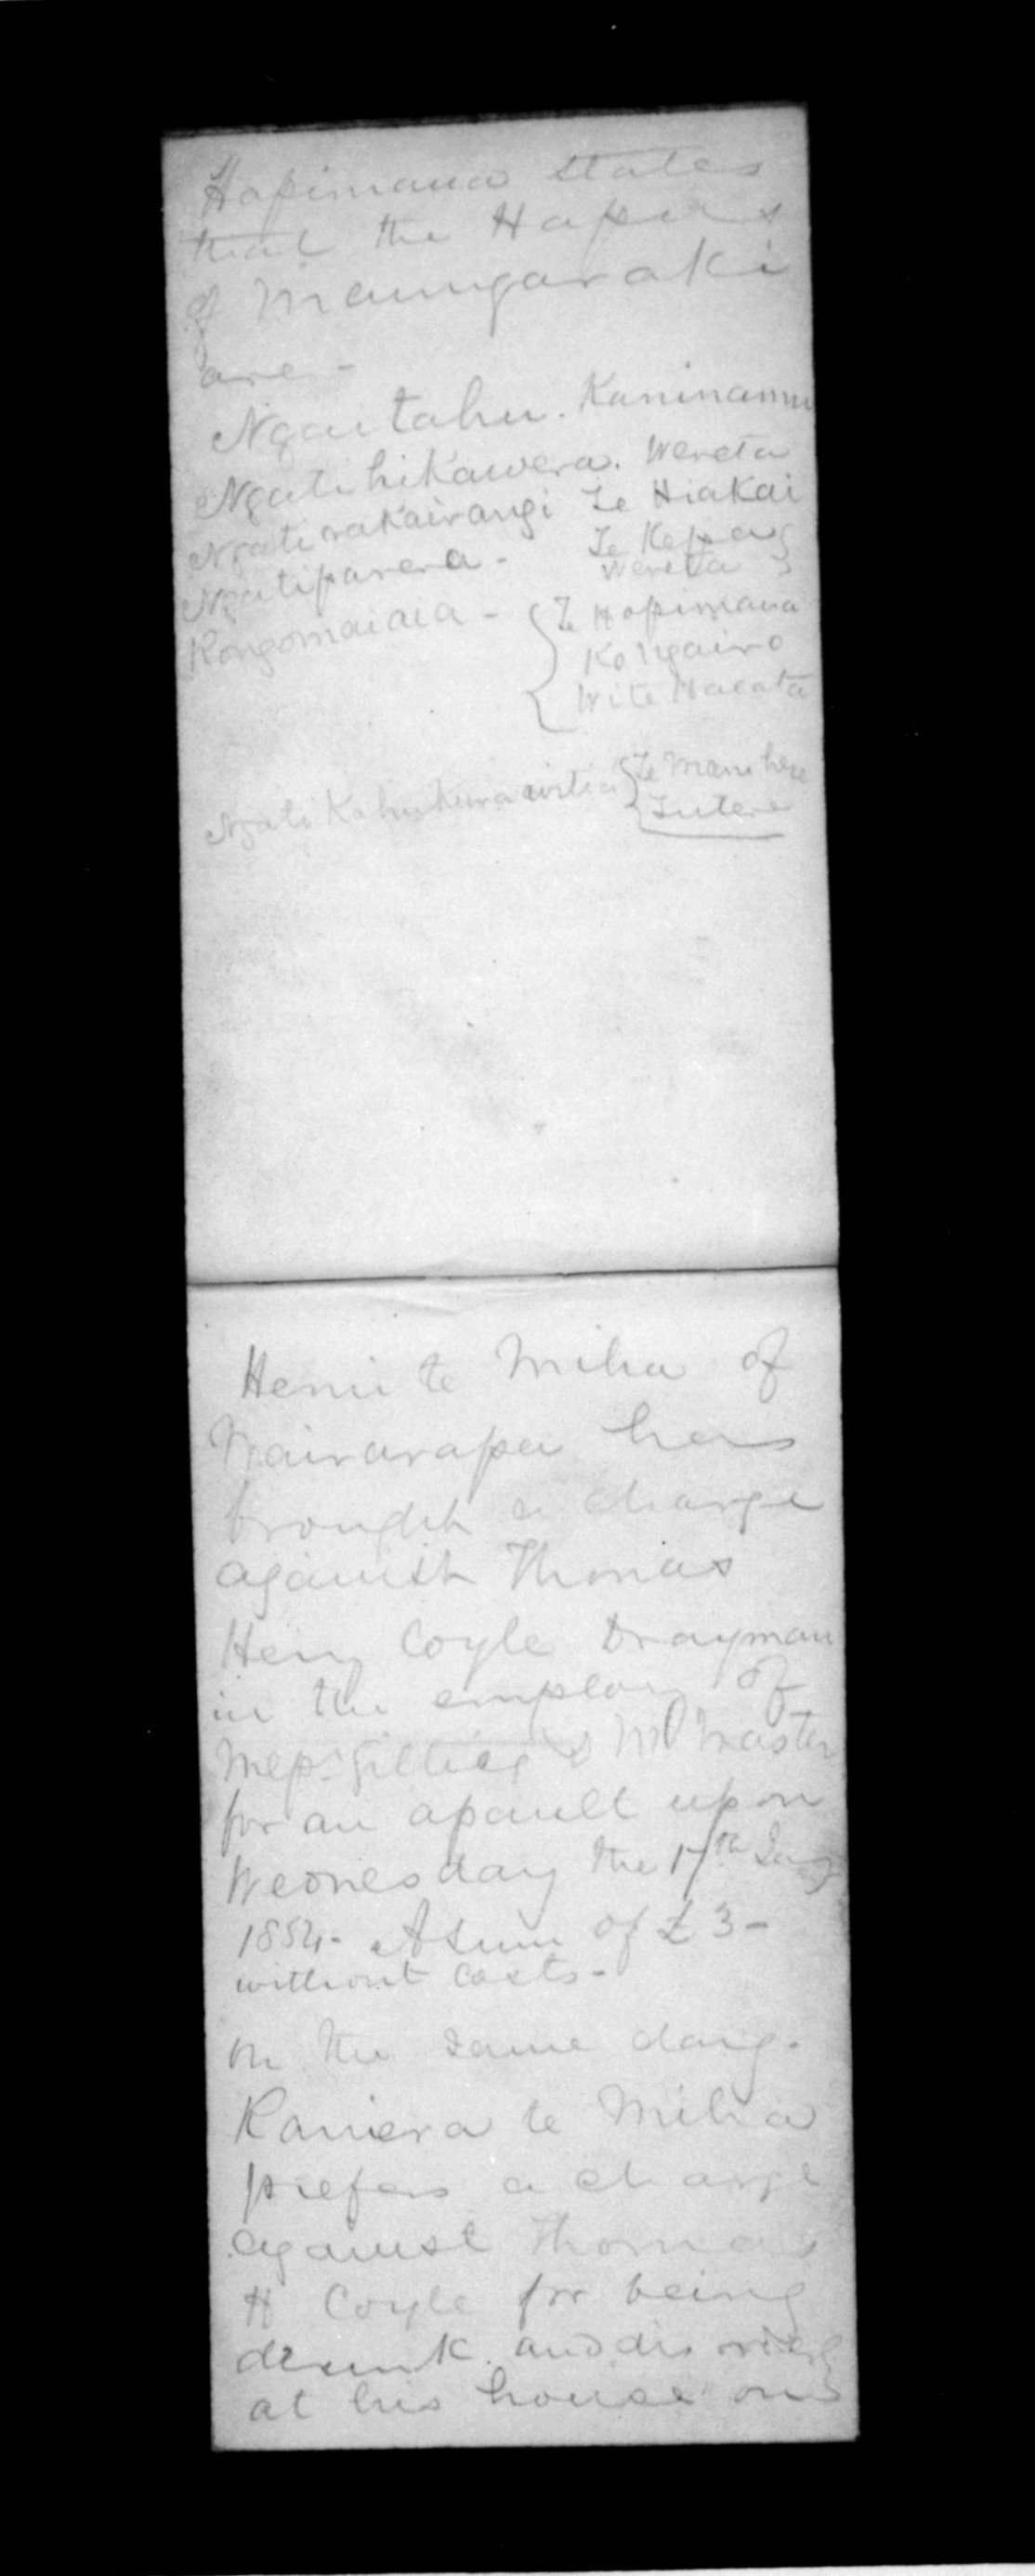 Hapimana states
that the Hapus
of Maungaraki
are -
Ngaitahu. Kaninamu
Ngatihikawera. Wereta
Ngatirakairangi Te Hiakai
Ngatiparera - Te Kepa
Wereta
Rongomaiaia - Te Hapimana
Ko Ngairo
Wi te
Ngati Kahukuraawitia Te Manihera
Tutere
Hemi te Miha of
Wairarapa has
brought a charge
against Thomas
Heny Coyle Drayman
in the employ of
Messrs. & McMaster
for an assault upon
Wednesday the 17th Jany
1854. A sum of £3 -
without costs -
On the same day.
Raniera te Miha
prefers a charge
against Thomas
H Coyle for being
drunk. and disorderly
at his house on